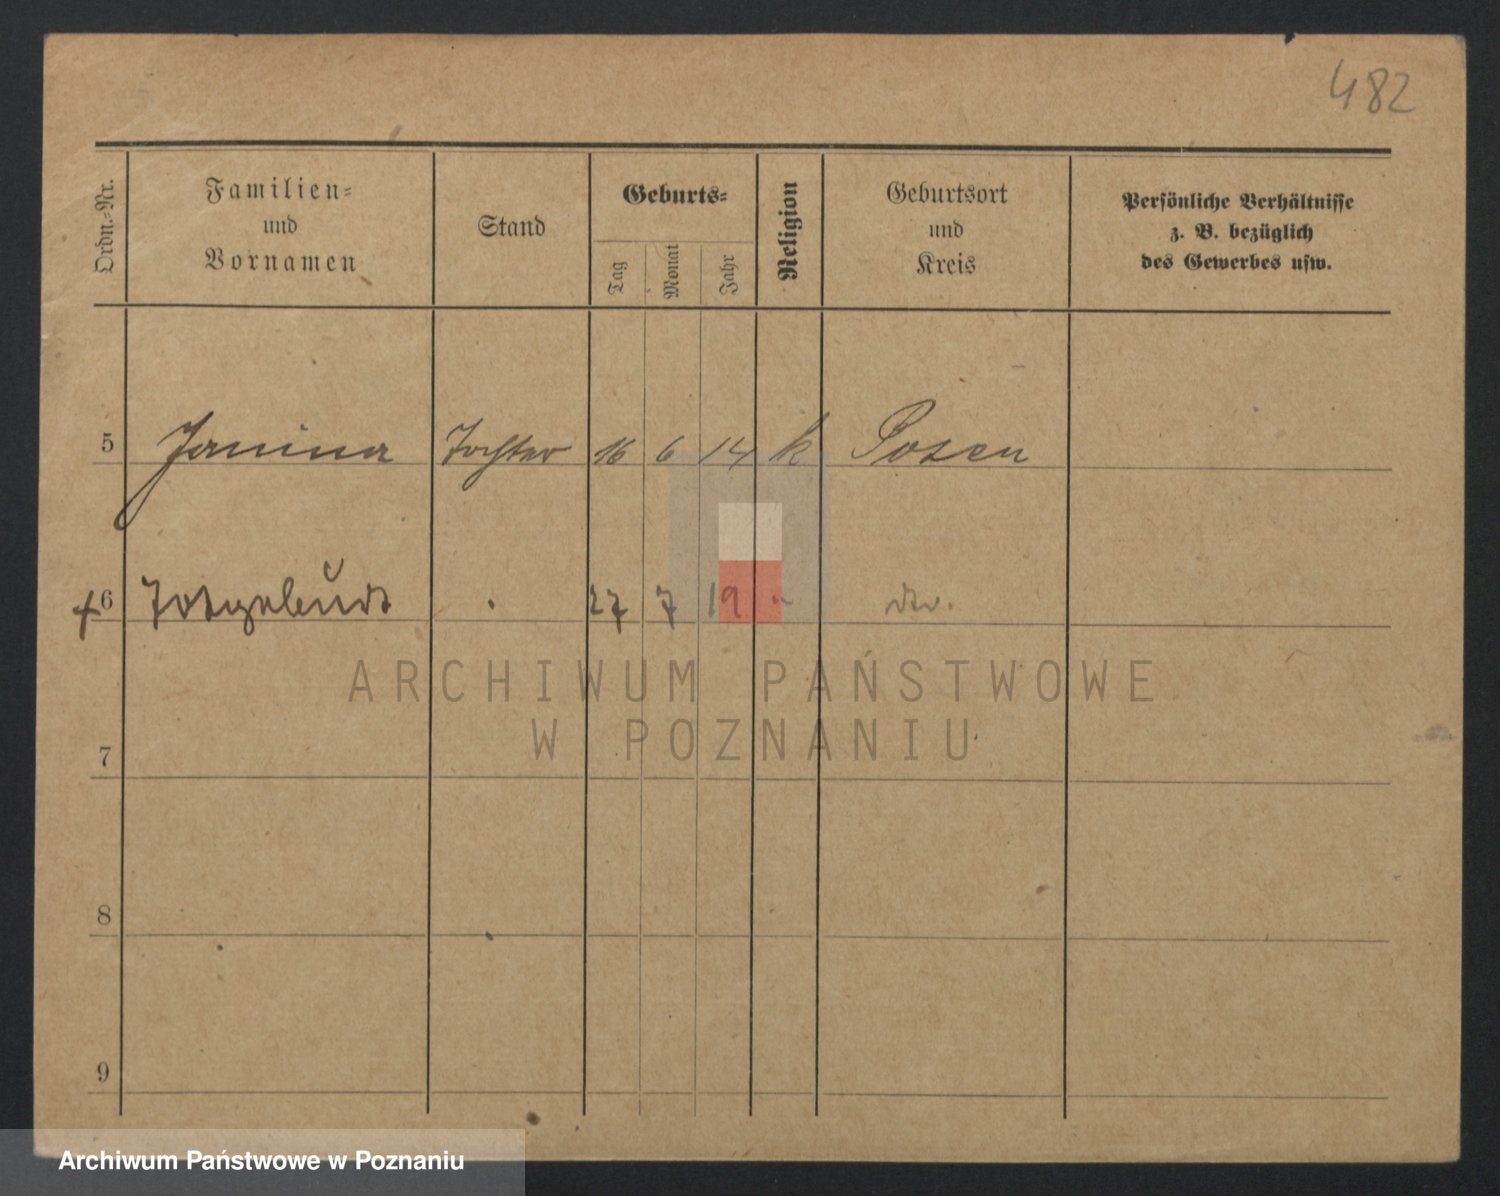 482
Ordn.-Nr.
Familien-
und
Vornamen
Stand
Geburts-
Tag
Monat
Jahr
Religion
Geburtsort
und
Kreis
Persönliche Verhältnisse
z. B. bezüglich
des Gewerbes usw.
5 Janina Tochter 16 6 14 k Posen
+ 6 Totgeburt 27 7 19 " dto.
ARCHIWUM PAŃSTWOWE
W POZNANIU
7
8
9
Archiwum Państwowe w Poznaniu